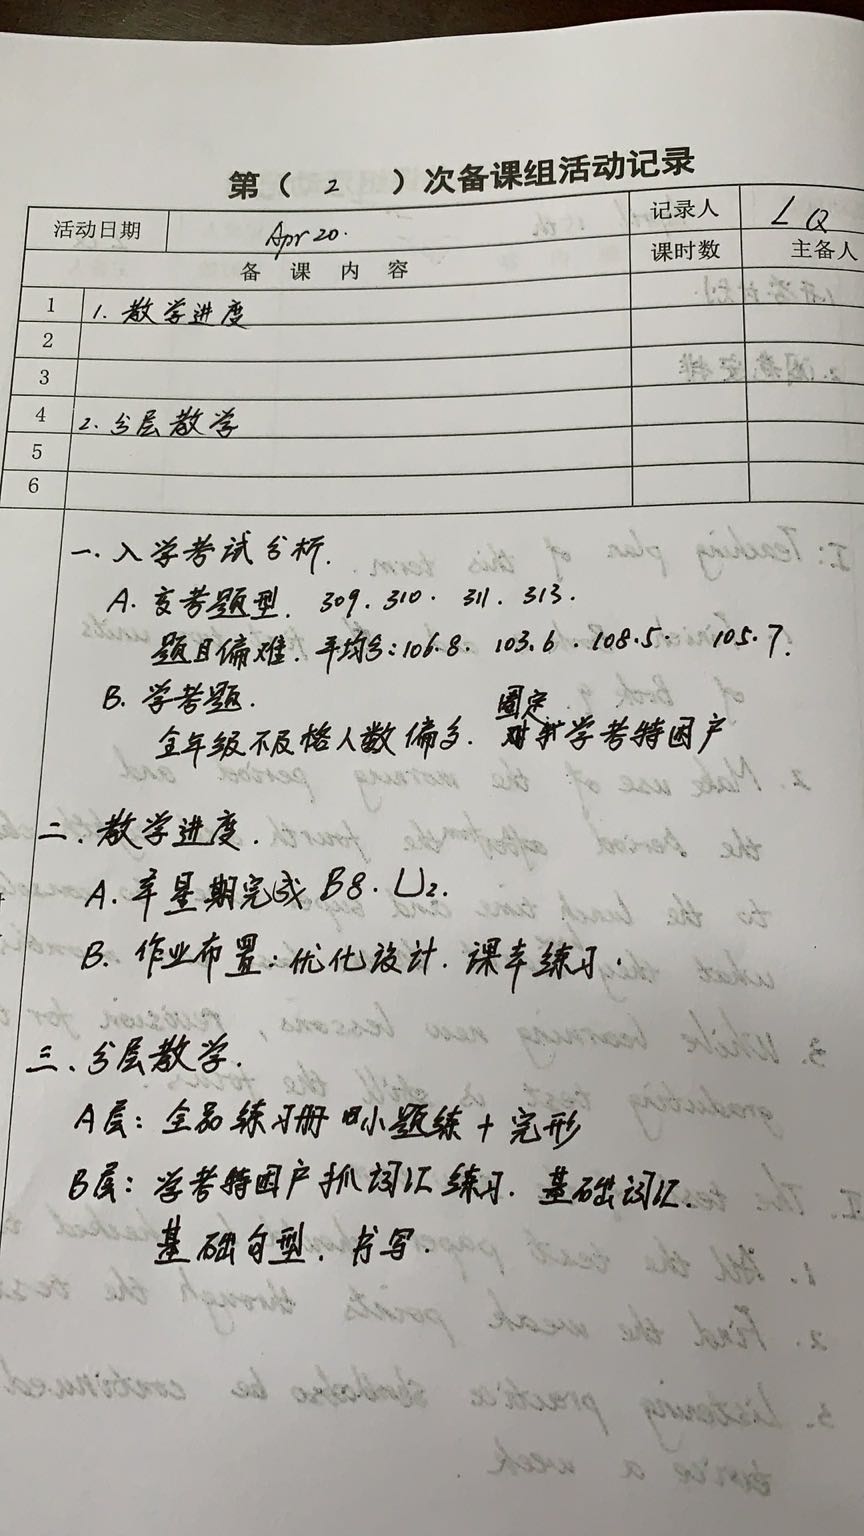 第（ 2 ）次备课组活动记录
活动日期 Apr 20. 记录人 L Q
备 课 内 容 课时数 主备人
1 1. 教学进度
2
3
4 2. 分层教学
5
6
一. 入学考试分析.
A. 高考题型. 309. 310. 311. 313.
题目偏难. 平均分: 106.8. 103.6. 108.5. 105.7.
B. 学考题.
固定
全年级不及格人数偏多. 学考特困户
二. 教学进度.
A. 本星期完成 B8. U2.
B. 作业布置: 优化设计. 课本练习.
三. 分层教学.
A层: 全品练习册 小题练 + 完形
B层: 学考特困户抓词汇练习. 基础词汇.
基础句型. 书写.